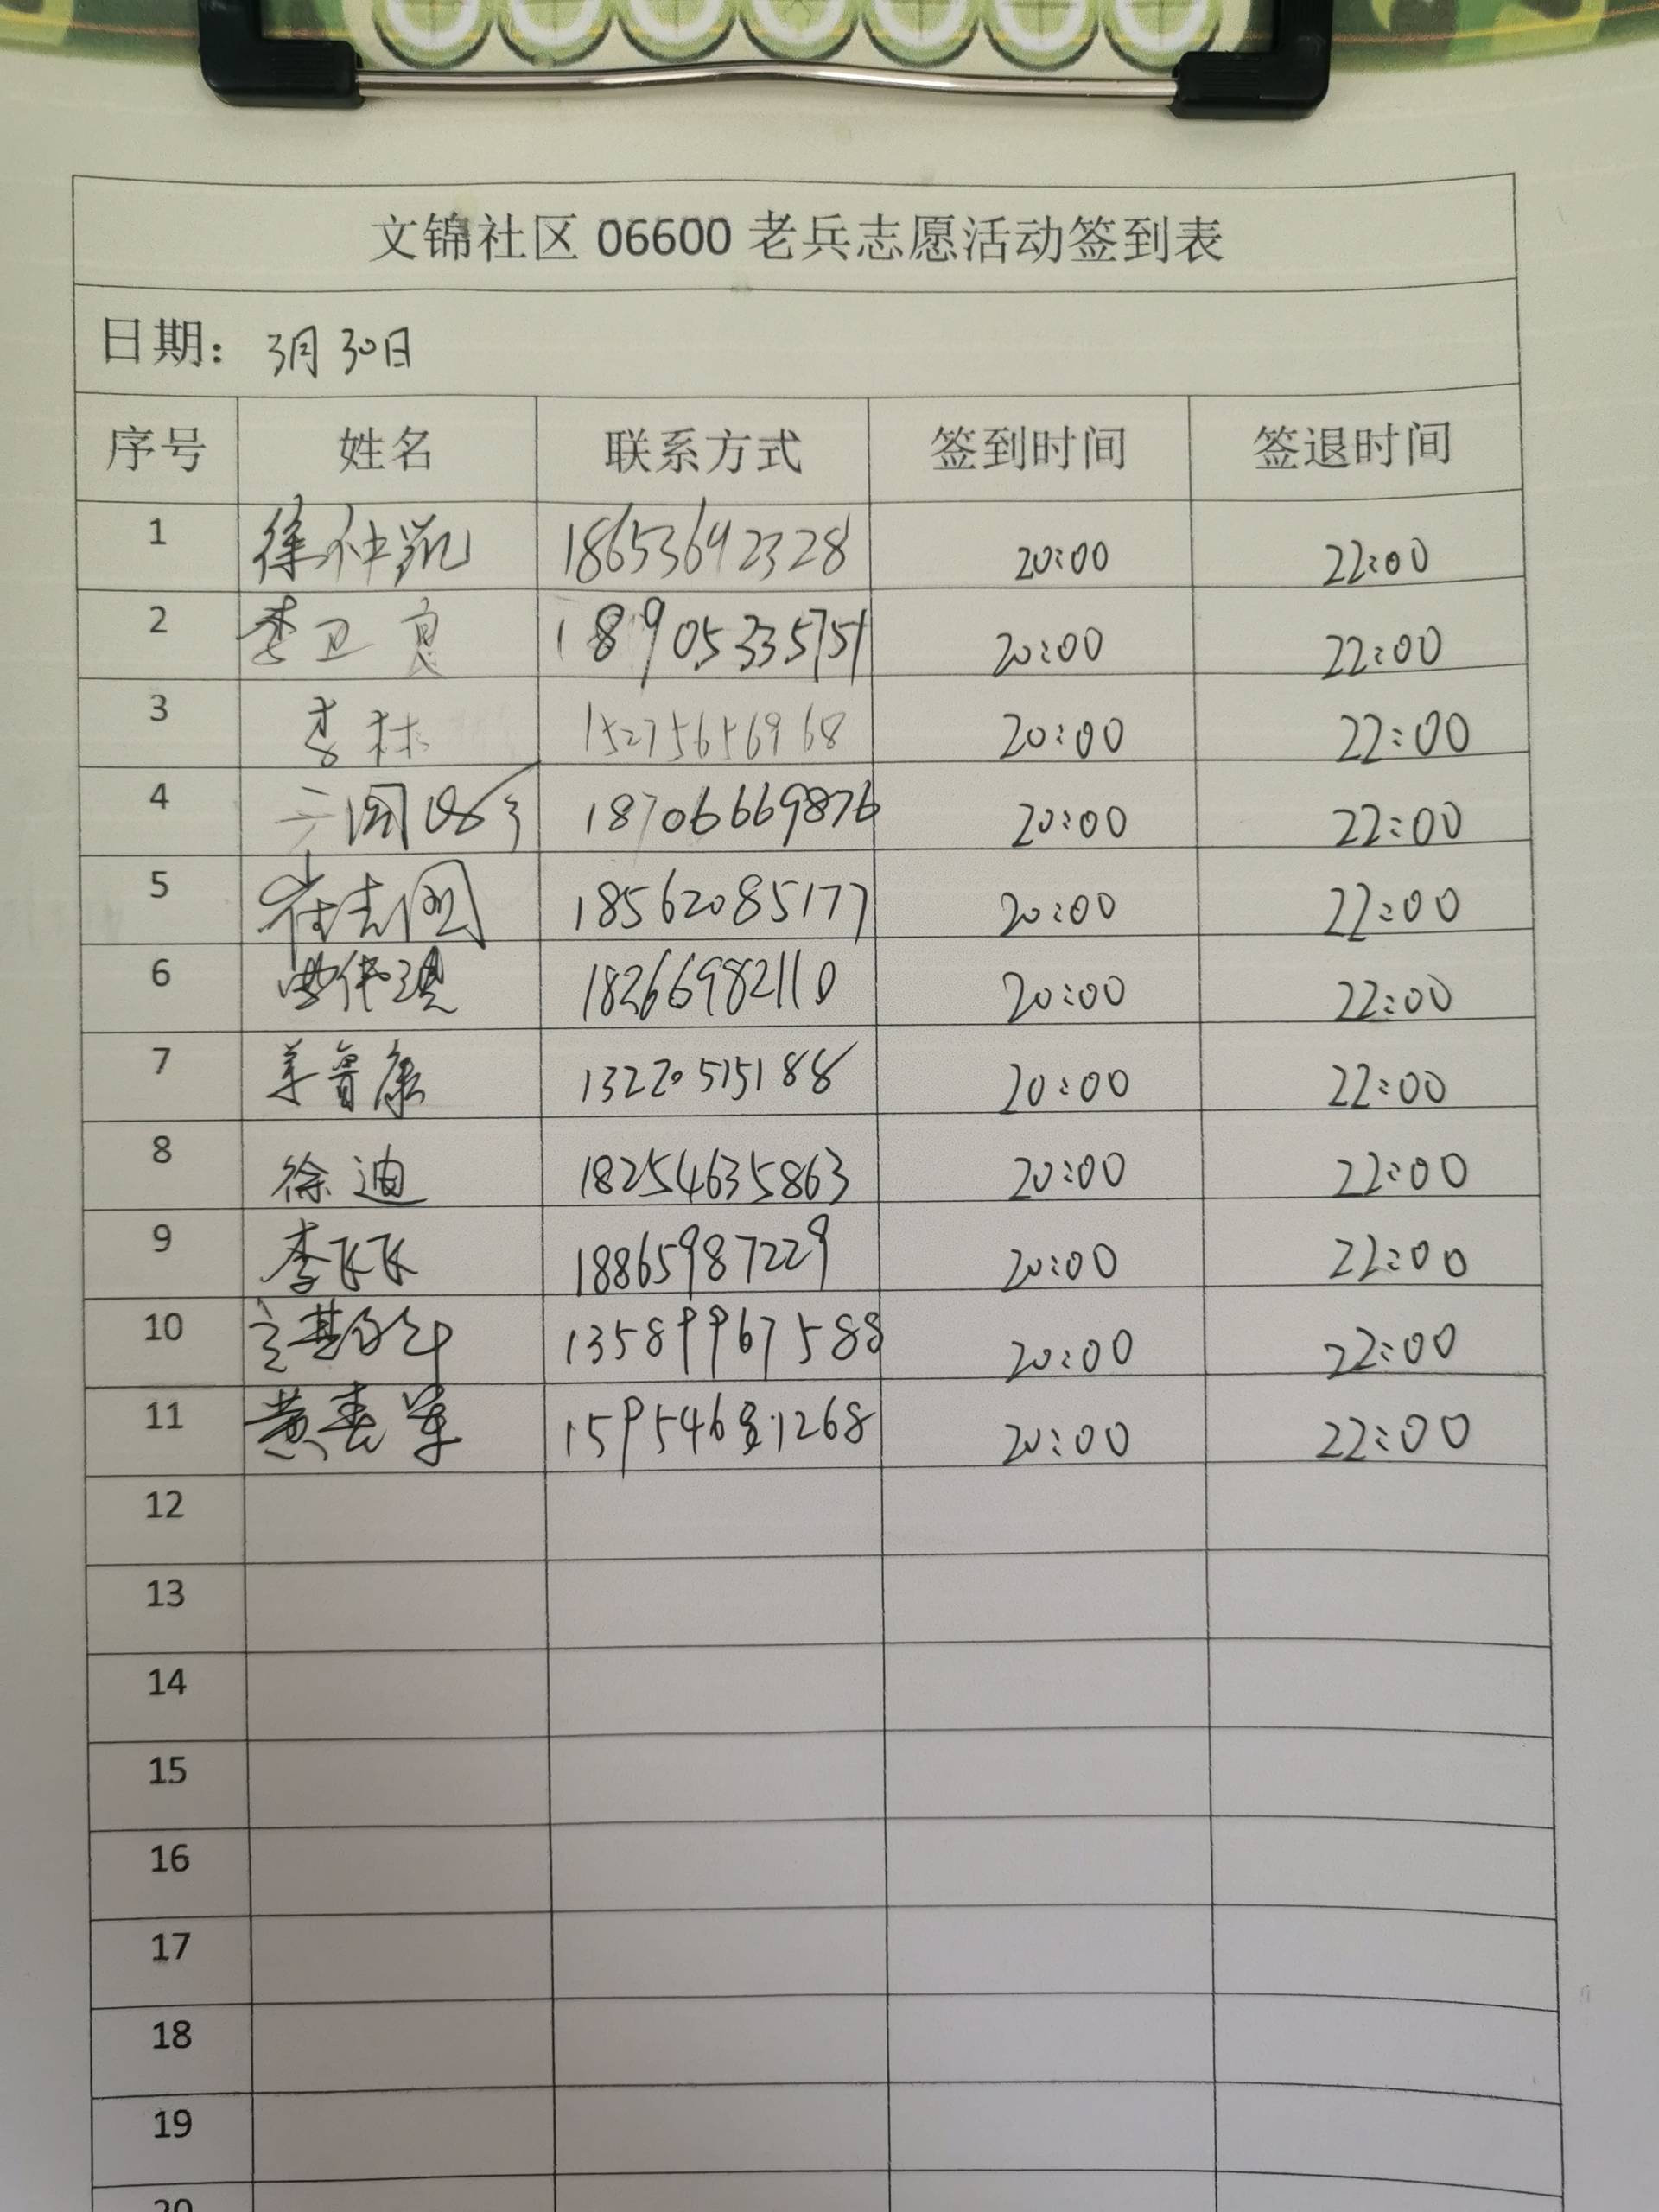 文锦社区 06600 老兵志愿活动签到表
日期： 3月30日
序号 姓名 联系方式 签到时间 签退时间
1 徐仲凯 18653692328 20:00 22:00
2 李卫良 18905335751 20:00 22:00
3 李林 15275656968 20:00 22:00
4 18706669876 20:00 22:00
5 崔志国 18562085177 20:00 22:00
6 18266982110 20:00 22:00
7 鲁康 13220515188 20:00 22:00
8 徐迪 18254635863 20:00 22:00
9 李飞飞 18865987229 20:00 22:00
10 13589967588 20:00 22:00
11 黄春军 15954681268 20:00 22:00
12
13
14
15
16
17
18
19
20